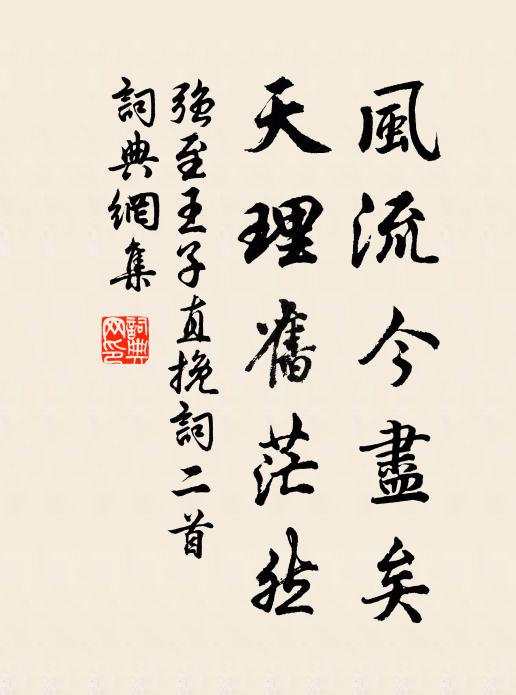 風流今盡矣
天理舊茫然
強至王子直挽詞二首
詞典網集
詞典网印